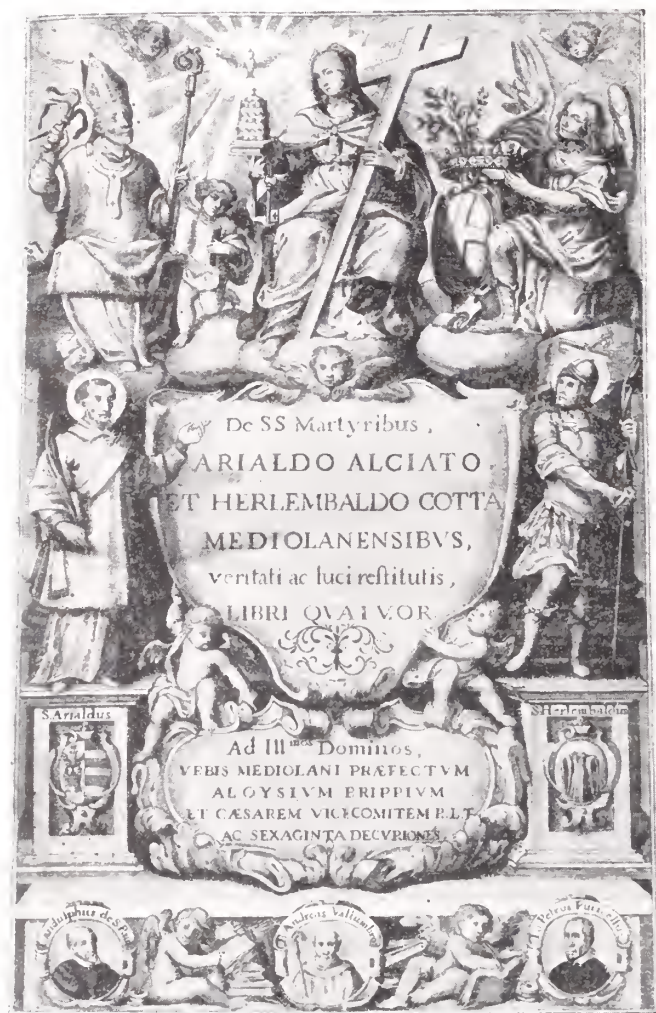 De SS Martyribus,
ARIALDO ALCIATO
ET HERLEMBALDO COTTA
MEDIOLANENSIBVS,
veritati ac luci reſtitutis,
LIBRI QVATVOR
S. Arialdus
S. Herlembaldus
Ad Ill.mos Dominos,
VRBIS MEDIOLANI PRÆFECTVM
ALOYSIVM ERIPPIVM
ET CÆSAREM VICECOMITEM R.LT
AC SEXAGINTA DECVRIONES
Andreas
Petrus